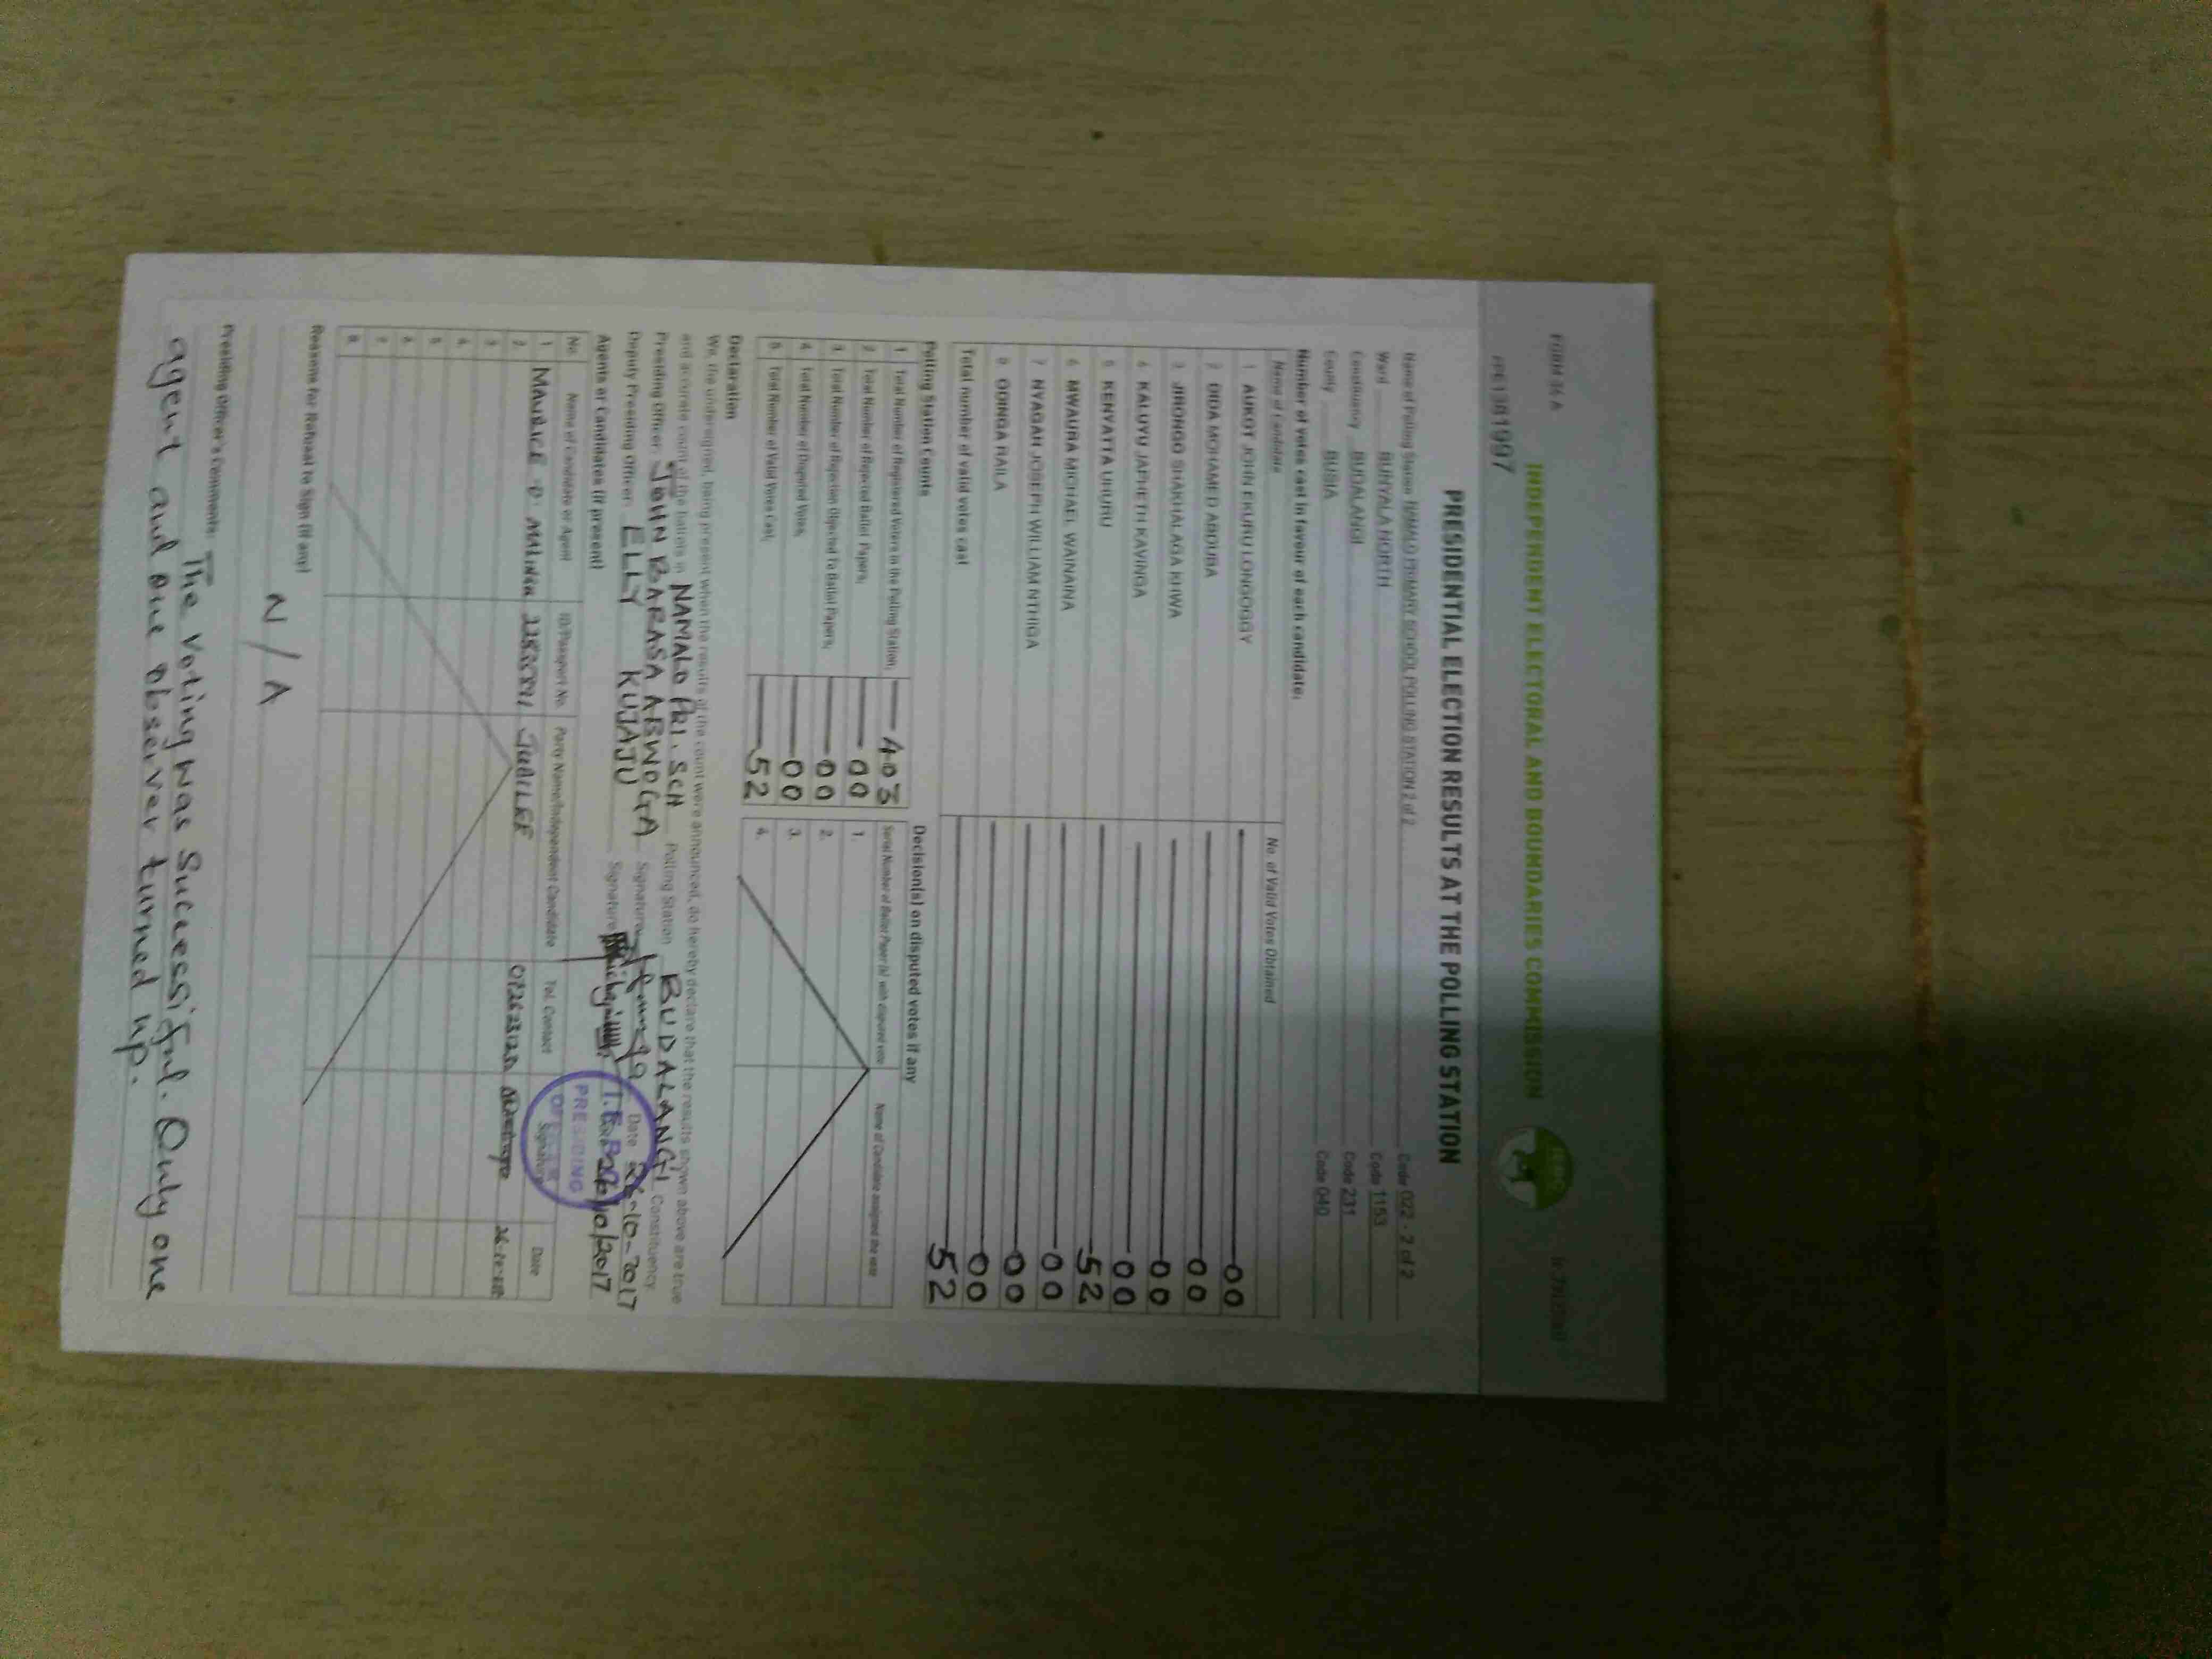 FORM 34 A
INDEPENDENT ELECTORAL AND BOUNDARIES COMMISSION
PRESIDENTIAL ELECTION RESULTS AT THE POLLING STATION
Name of Polling Station NAMALO PRIMARY SCHOOL POLLING STATION 2 of 2 Code 022 - 2 of 2
Ward BUNYALA NORTH Code 1153
Constituency BUDALANGI Code 231
County BUSIA Code 040
Number of votes cast in favour of each candidate:
Name of Candidate No. of Valid Votes Obtained
1 AUKOT JOHN EKURU LONGOGGY 00
2 DIDA MOHAMED ABDUBA 00
3 JIRONGO SHAKHALAGA KHWA 00
4 KALUYU JAPHETH KAVINGA 00
5 KENYATTA UHURU 52
6 MWAURA MICHAEL WAINAINA 00
7 NYAGAH JOSEPH WILLIAM NTHIGA 00
8 ODINGA RAILA 00
Total number of valid votes cast 52
Polling Station Counts
1 Total Number of Registered Voters in the Polling Station; 403
2 Total Number of Rejected Ballot Papers; 00
3 Total Number of Rejection Objected To Ballot Papers; 00
4 Total Number of Disputed Votes; 00
5 Total Number of Valid Votes Cast; 52
Decision(s) on disputed votes if any
Serial Number of Ballot Paper (s) with disputed vote Name of Candidate assigned the vote
1.
2.
3.
4.
Declaration
We, the undersigned, being present when the results of the count were announced, do hereby declare that the results shown above are true
and accurate count of the ballots in NAMALO PRI. SCH Polling Station BUDALANGI Constituency
Presiding Officer JOHN BARASA ABWOGA Signature Date 26-10-2017
Deputy Presiding Officer ELLY KUJAJU Signature 26/10/2017
I.E.B.C
PRESIDING
OFFICER
Agents or Candidates (if present)
No. Name of Candidate or Agent ID/Passport No. Party Name/Independent Candidate Tel. Contact Signature Date
1 MAURICE O. JUBILEE
2
3
4
5
6
7
8
Reasons for Refusal to Sign (if any)
N/A
Presiding Officer's Comments: The voting was Successiful. Only one
agent and one observer turned up.